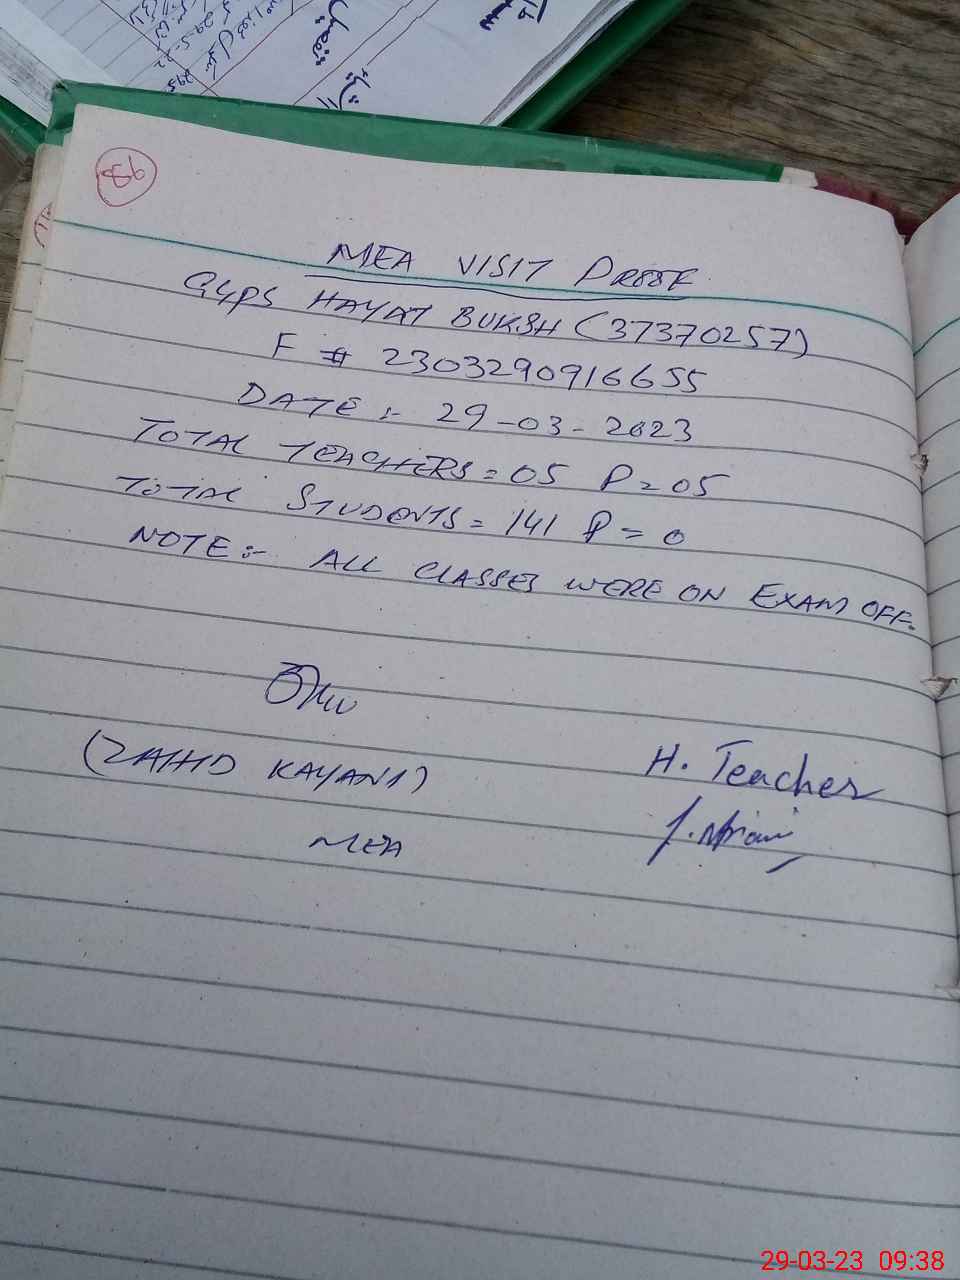 86
MEA VISIT PROOF
GGPS HAYAT BUKSH (37370257)
F # 2303290916655
DATE :- 29-03-2023
TOTAL TEACHERS = 05 P = 05
TOTAL STUDENTS = 141 P = 0
NOTE :- ALL CLASSES WERE ON EXAM OFF.
(ZAHID KAYANI)
MEA
H. Teacher
29-03-23 09:38